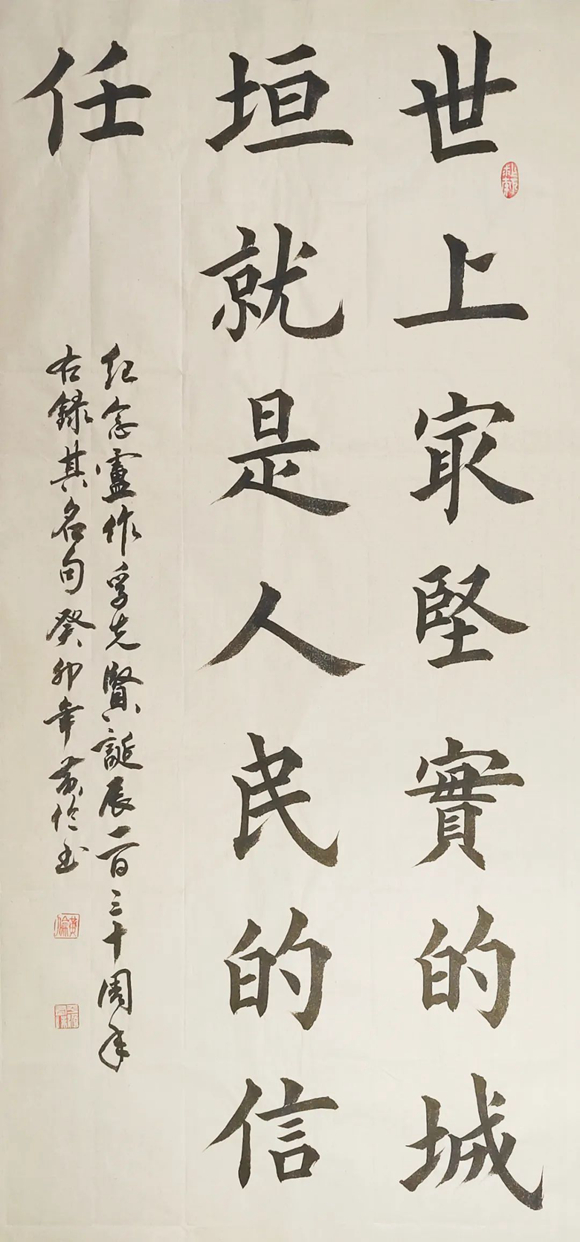 世上㝡堅實的城
垣就是人民的信
任
紀念盧作孚先賢誕辰一百三十周年
右錄其名句癸卯年黄倫書